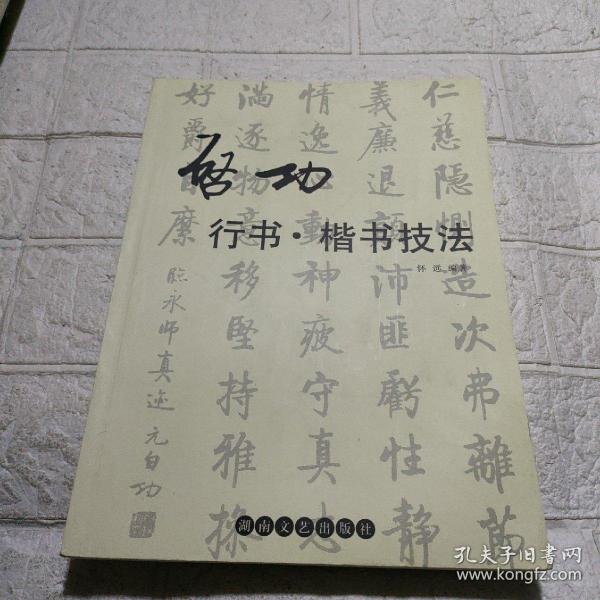 启功
行书·楷书技法
怀远 编著
仁慈隐恻造次弗離萬
義廉退顛沛匪虧性静
情逸心動神疲守真志
满逐物意移堅持雅操
好爵自縻
臨永师真迹 元白功
湖南文艺出版社
孔夫子旧书网
www.kongfz.com